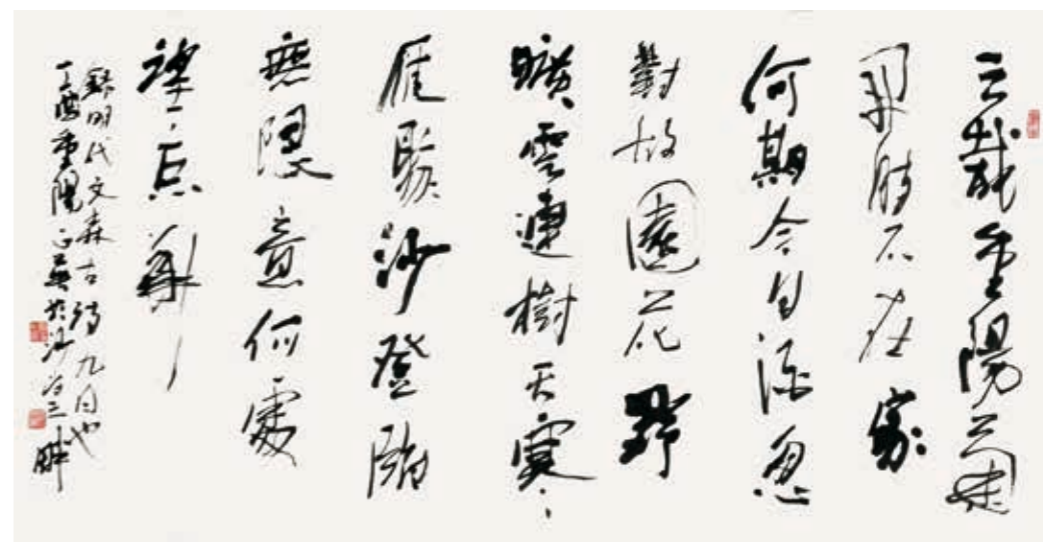 三載重陽菊
開時不在家
何期今日酒忽
對故園花野
曠雲連樹天寒
雁聚沙登臨
無限意何處
望京華
錄明代文森古詩九日也
丁酉重陽於沙